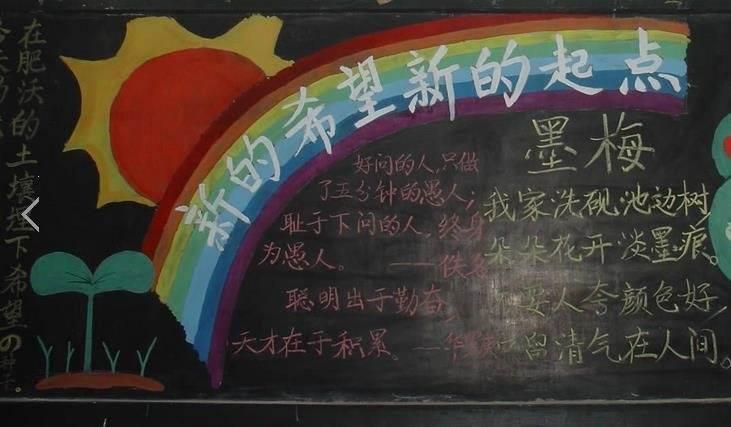 在肥沃的土壤埋下希望の种子。
新的希望新的起点
好问的人,只做
了五分钟的愚人;
耻于下问的人,终身
为愚人。 ——佚名
聪明出于勤奋,
天才在于积累。——华
墨梅
我家洗砚池边树,
朵朵花开淡墨痕。
要人夸颜色好,
留清气在人间。